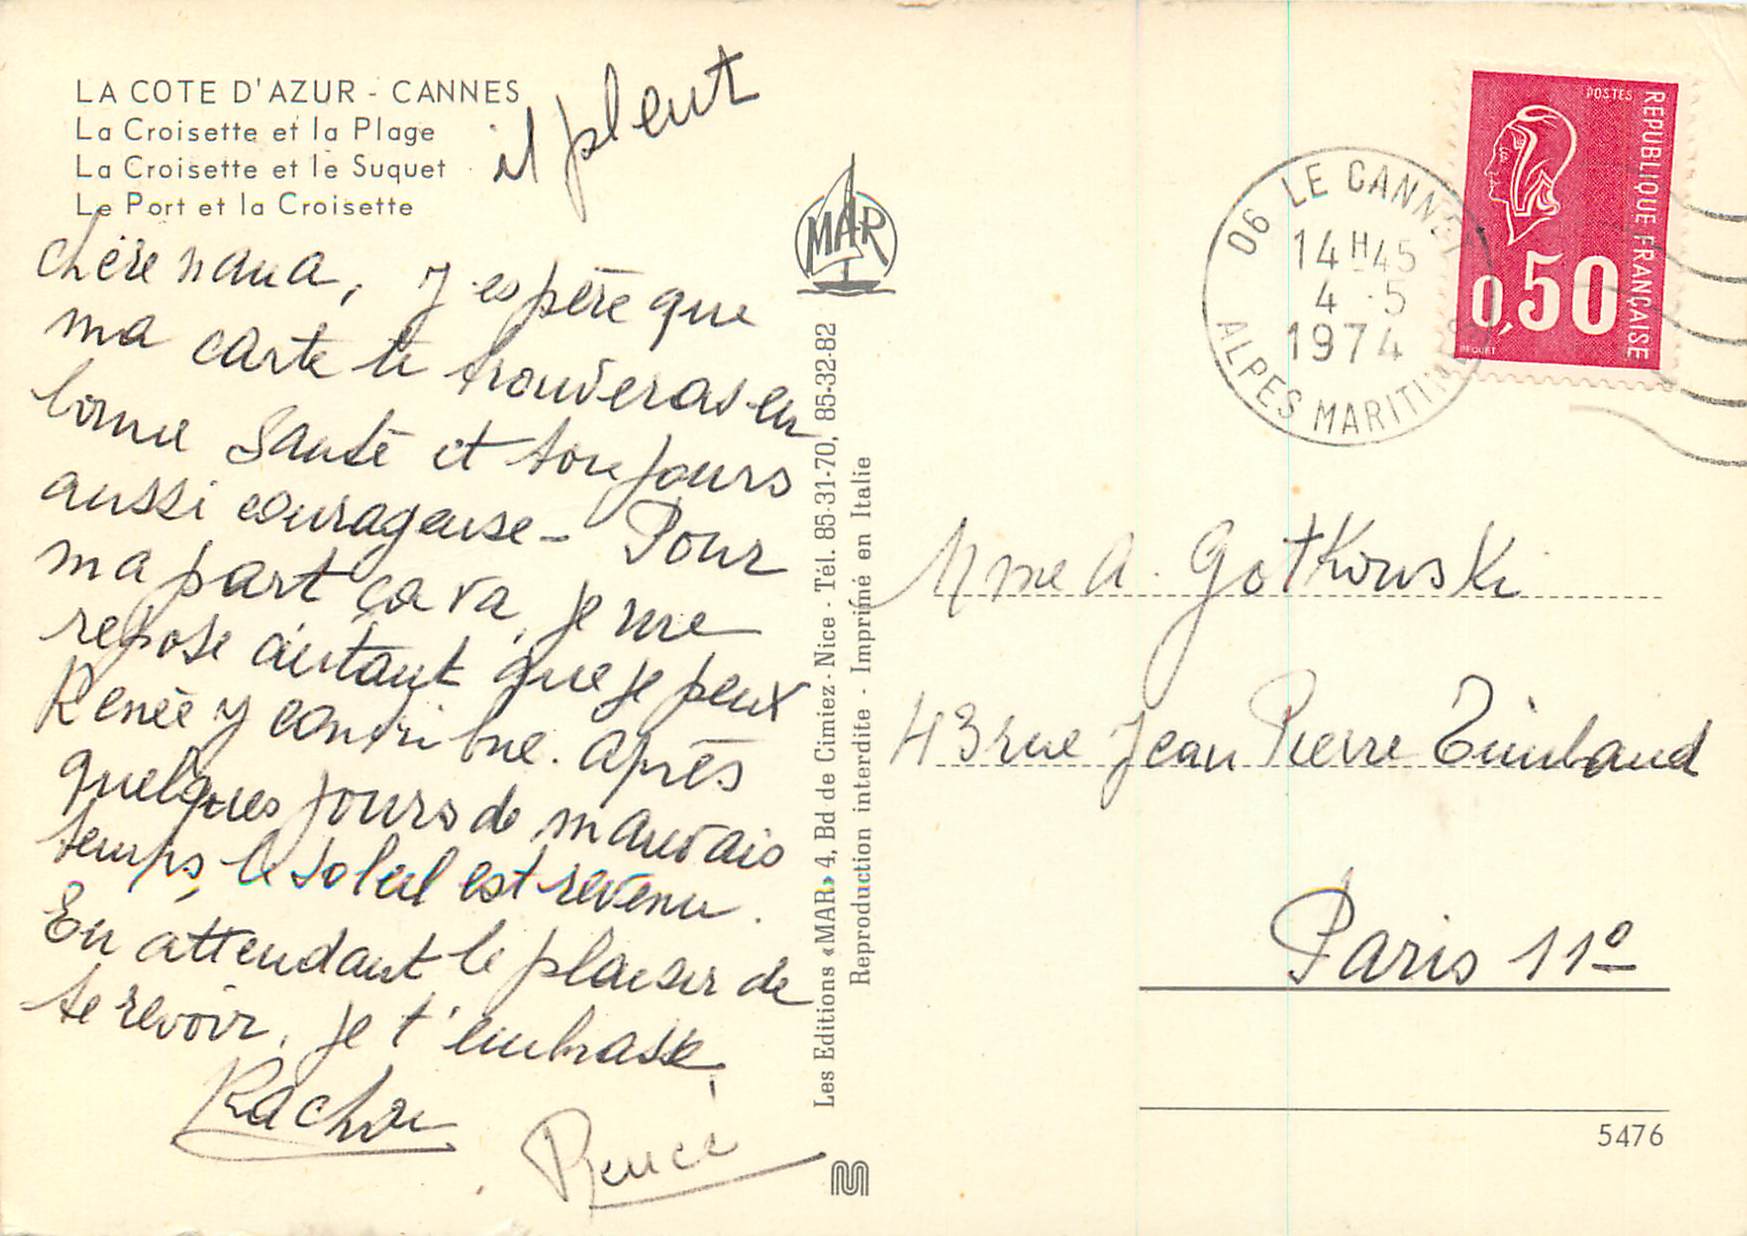 LA COTE D'AZUR - CANNES
La Croisette et la Plage
La Croisette et le Suquet
Le Port et la Croisette
il pleut
chère nana, j'espère que
ma carte te trouveras en
bonne santé et toujours
aussi courageuse - Pour
ma part ça va, je me
repose autant que je peux
Renée y contribue. après
quelques jours de mauvais
temps, le soleil est revenu.
En attendant le plaisir de
te revoir, je t'embrasse,
Rachou
Renée
MAR
Les Editions «MAR» 4, Bd de Cimiez - Nice - Tél. 85-31-70, 85-32-82
Reproduction interdite - Imprimé en Italie
06 LE CANNET
14H45
4 - 5
1974
ALPES MARITIMES
POSTES
REPUBLIQUE FRANÇAISE
0,50
BEQUET
Mme A. Gotkowski
43 rue Jean Pierre Timbaud
Paris 11e
5476